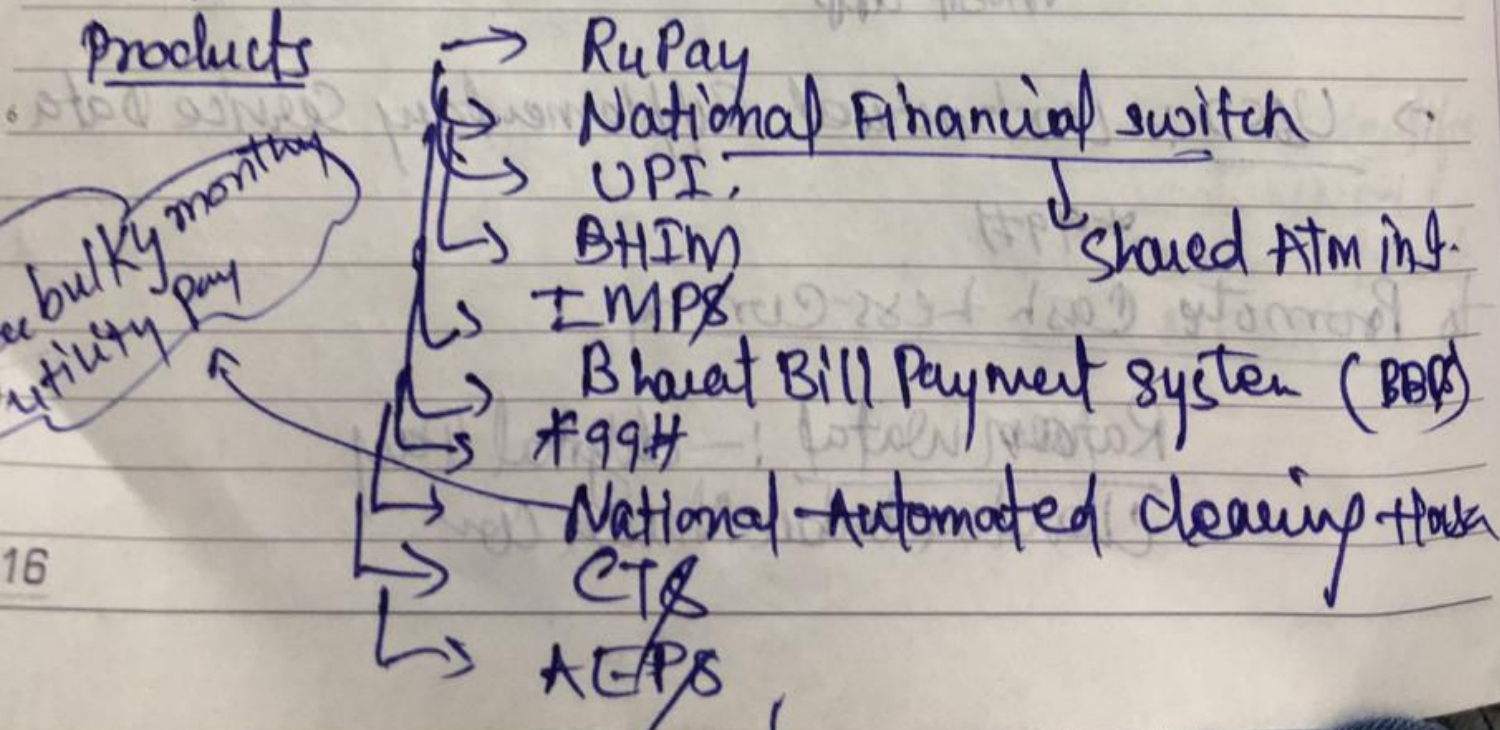 Products
RuPay
National Financial switch
UPI.
Shared ATM inf.
BHIM
IMPS
Bharat Bill Payment System (BBPS)
*99#
National Automated Clearing House
CTS
AEPS
bulky monthly
utility pay
16